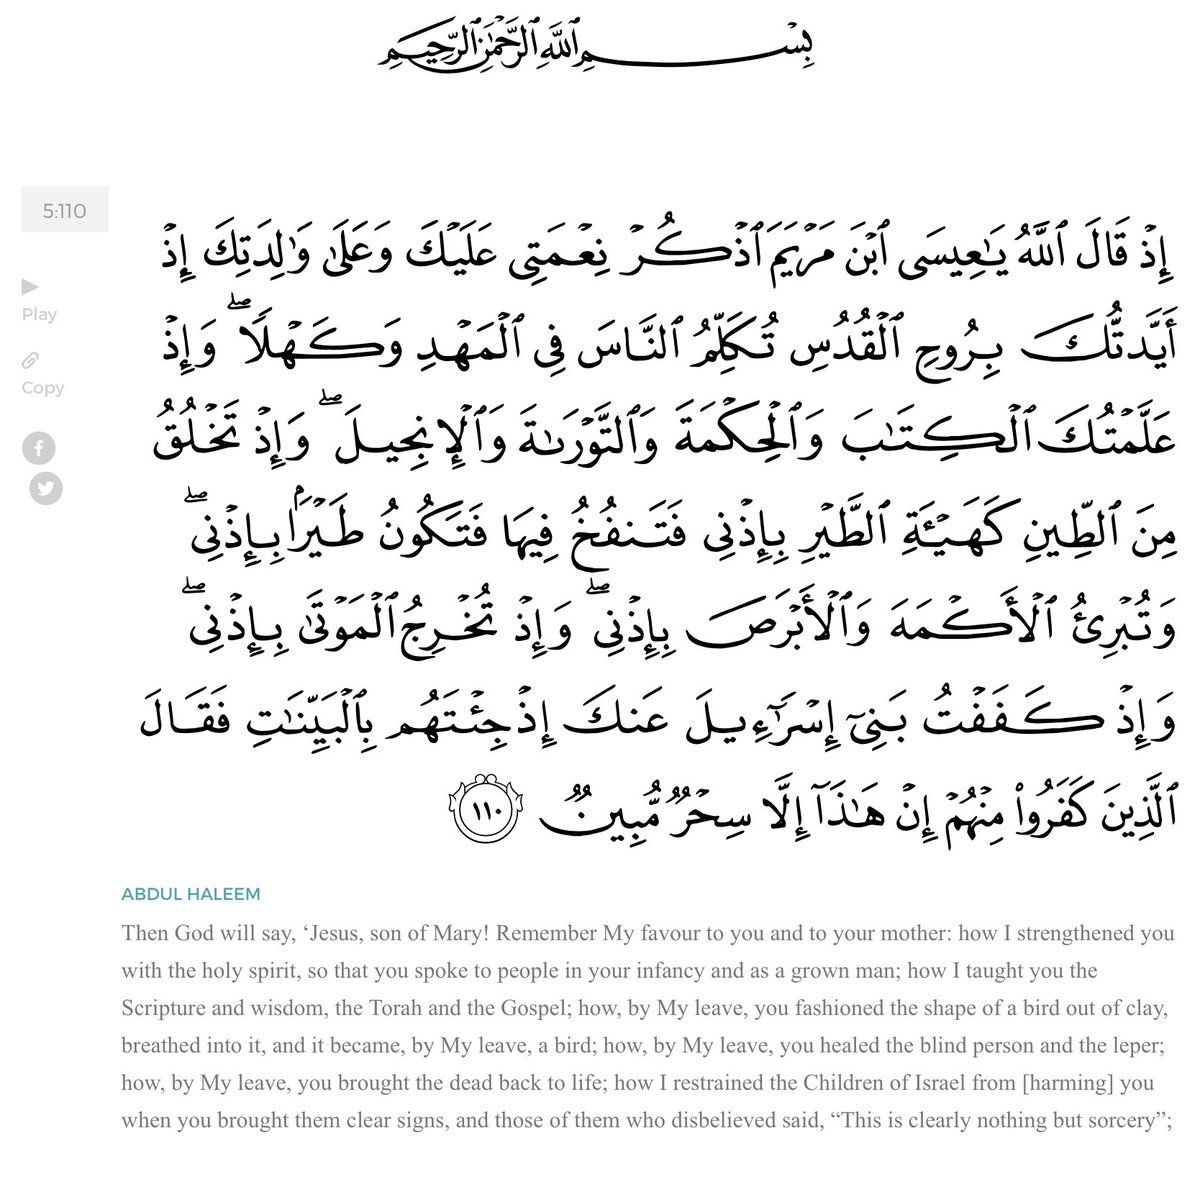 بِسْمِ ٱللَّهِ ٱلرَّحْمَٰنِ ٱلرَّحِيمِ
5:110
إِذْ قَالَ ٱللَّهُ يَـٰعِيسَى ٱبْنَ مَرْيَمَ ٱذْكُرْ نِعْمَتِى عَلَيْكَ وَعَلَىٰ وَٰلِدَتِكَ إِذْ
أَيَّدتُّكَ بِرُوحِ ٱلْقُدُسِ تُكَلِّمُ ٱلنَّاسَ فِى ٱلْمَهْدِ وَكَهْلًا ۖ وَإِذْ
عَلَّمْتُكَ ٱلْكِتَـٰبَ وَٱلْحِكْمَةَ وَٱلتَّوْرَىٰةَ وَٱلْإِنجِيلَ ۖ وَإِذْ تَخْلُقُ
مِنَ ٱلطِّينِ كَهَيْـَٔةِ ٱلطَّيْرِ بِإِذْنِى فَتَنفُخُ فِيهَا فَتَكُونُ طَيْرًۢا بِإِذْنِى ۖ
وَتُبْرِئُ ٱلْأَكْمَهَ وَٱلْأَبْرَصَ بِإِذْنِى ۖ وَإِذْ تُخْرِجُ ٱلْمَوْتَىٰ بِإِذْنِى ۖ
وَإِذْ كَفَفْتُ بَنِىٓ إِسْرَٰٓءِيلَ عَنكَ إِذْ جِئْتَهُم بِٱلْبَيِّنَـٰتِ فَقَالَ
ٱلَّذِينَ كَفَرُوا۟ مِنْهُمْ إِنْ هَـٰذَآ إِلَّا سِحْرٌ مُّبِينٌ ١١٠
Play
Copy
ABDUL HALEEM
Then God will say, ‘Jesus, son of Mary! Remember My favour to you and to your mother: how I strengthened you
with the holy spirit, so that you spoke to people in your infancy and as a grown man; how I taught you the
Scripture and wisdom, the Torah and the Gospel; how, by My leave, you fashioned the shape of a bird out of clay,
breathed into it, and it became, by My leave, a bird; how, by My leave, you healed the blind person and the leper;
how, by My leave, you brought the dead back to life; how I restrained the Children of Israel from [harming] you
when you brought them clear signs, and those of them who disbelieved said, “This is clearly nothing but sorcery”;